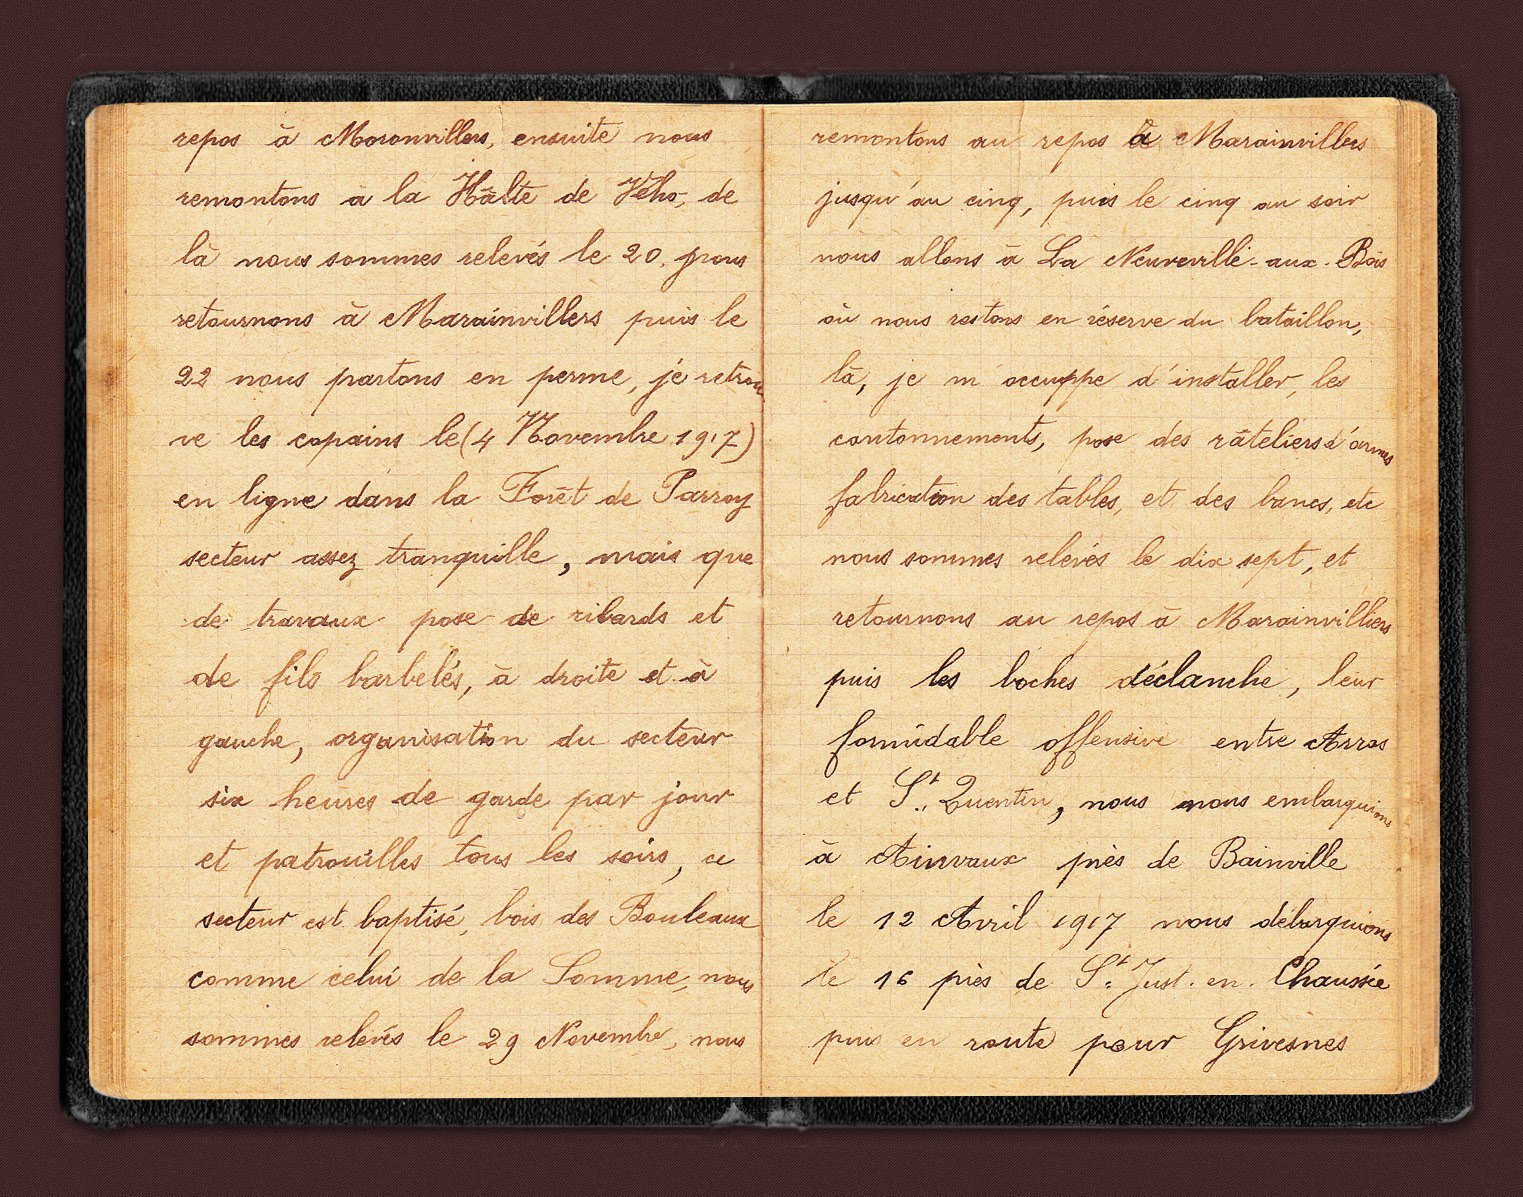 repos à Moronvillers, ensuite nous
remontons à la Hâlte de Vého, de
là nous sommes relevés le 20, nous
retournons à Marainvillers puis le
22 nous partons en perme, je retrou
ve les copains le (4 Novembre 1917)
en ligne dans la Forêt de Parroy
secteur assez tranquille, mais que
de travaux pose de ribards et
de fils barbelés, à droite et à
gauche, organisation du secteur
six heures de garde par jour
et patrouilles tous les soirs, ce
secteur est baptisé, bois des Bouleaux
comme celui de la Somme, nous
sommes relevés le 29 Novembre, nous
remontons au repos à Marainvillers
jusqu'au cinq, puis le cinq au soir
nous allons à La Neuveville-aux-Bois
où nous restons en réserve du bataillon,
là, je m occuppe d'installer, les
cantonnements, pose des râteliers d'armes
fabrication des tables, et des bancs, etc
nous sommes relevés le dix sept, et
retournons au repos à Marainvilliers
puis les boches déclanche, leur
formidable offensive entre Arras
et St. Quentin, nous nous embarquions
à Ainvaux près de Bainville
le 12 Avril 1917 nous débarquions
le 16 près de St. Just-en-Chaussée
puis en route pour Grivesnes